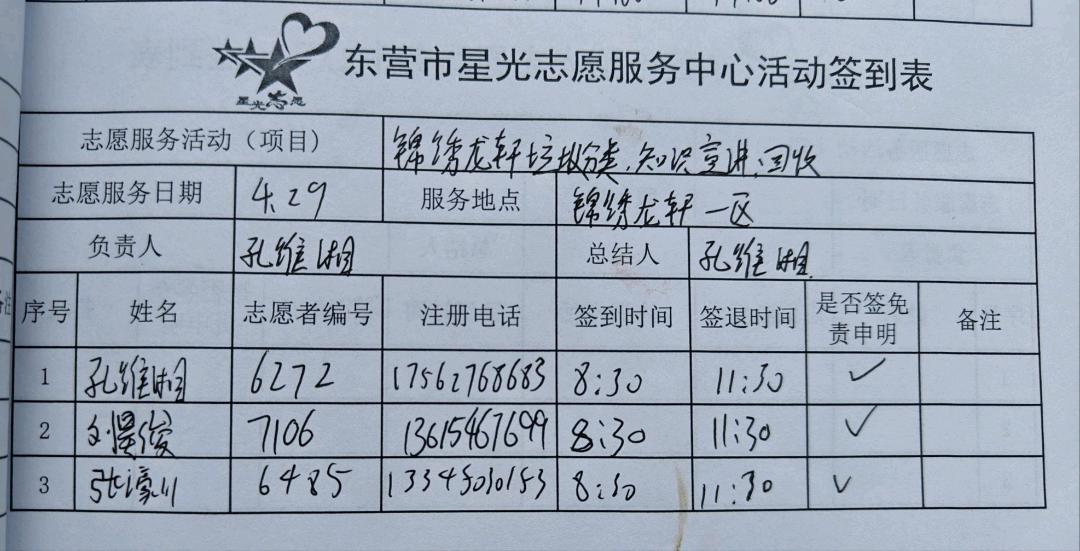 星光志愿
东营市星光志愿服务中心活动签到表
志愿服务活动（项目） 锦绣龙轩垃圾分类、知识宣讲、回收
志愿服务日期 4.29 服务地点 锦绣龙轩一区
负责人 孔维湘 总结人 孔维湘
序号 姓名 志愿者编号 注册电话 签到时间 签退时间 是否签免责申明 备注
1 孔维湘 6272 17562768683 8:30 11:30 ✓
2 7106 13615467699 8:30 11:30 ✓
3 张濠川 6485 13345030153 8:30 11:30 ✓